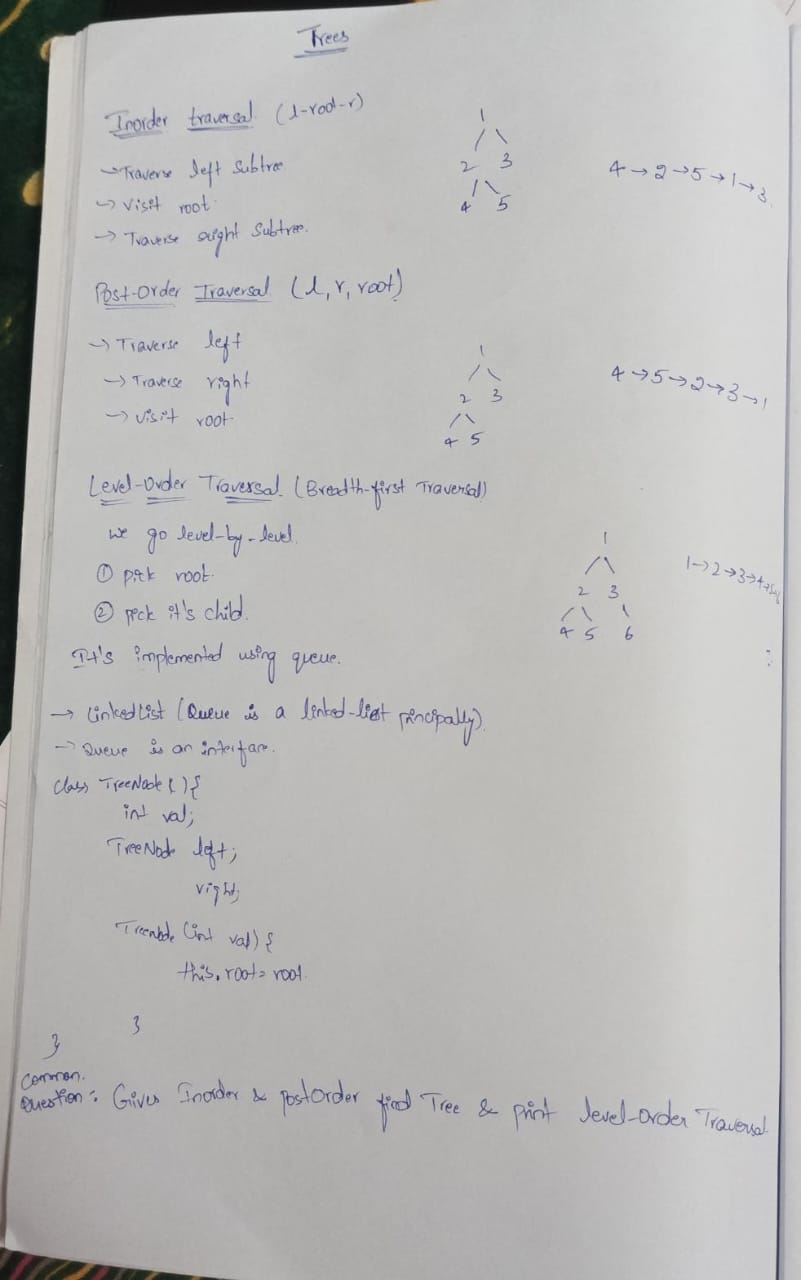 Trees
Inorder traversal (l-root-r)
→ Traverse left subtree
→ Visit root.
→ Traverse right Subtree.
1
/ \
2 3
/ \
4 5
4→2→5→1→3
Post-Order Traversal (l, r, root)
→ Traverse left
→ Traverse right
→ Visit root.
1
/ \
2 3
/ \
4 5
4→5→2→3→1
Level-Order Traversal (Breadth-first Traversal)
We go level-by-level.
① pick root.
② pick it's child.
1
/ \
2 3
/ \ \
4 5 6
1→2→3→4→5→6
It's implemented using queue.
→ LinkedList (Queue is a linked-list principally)
→ Queue is an interface.
class TreeNode(){
int val;
TreeNode left;
right;
Treenode (int val) {
this.root = root.
}
}
Common.
Question: Given Inorder & postOrder find Tree & print level-order Traversal